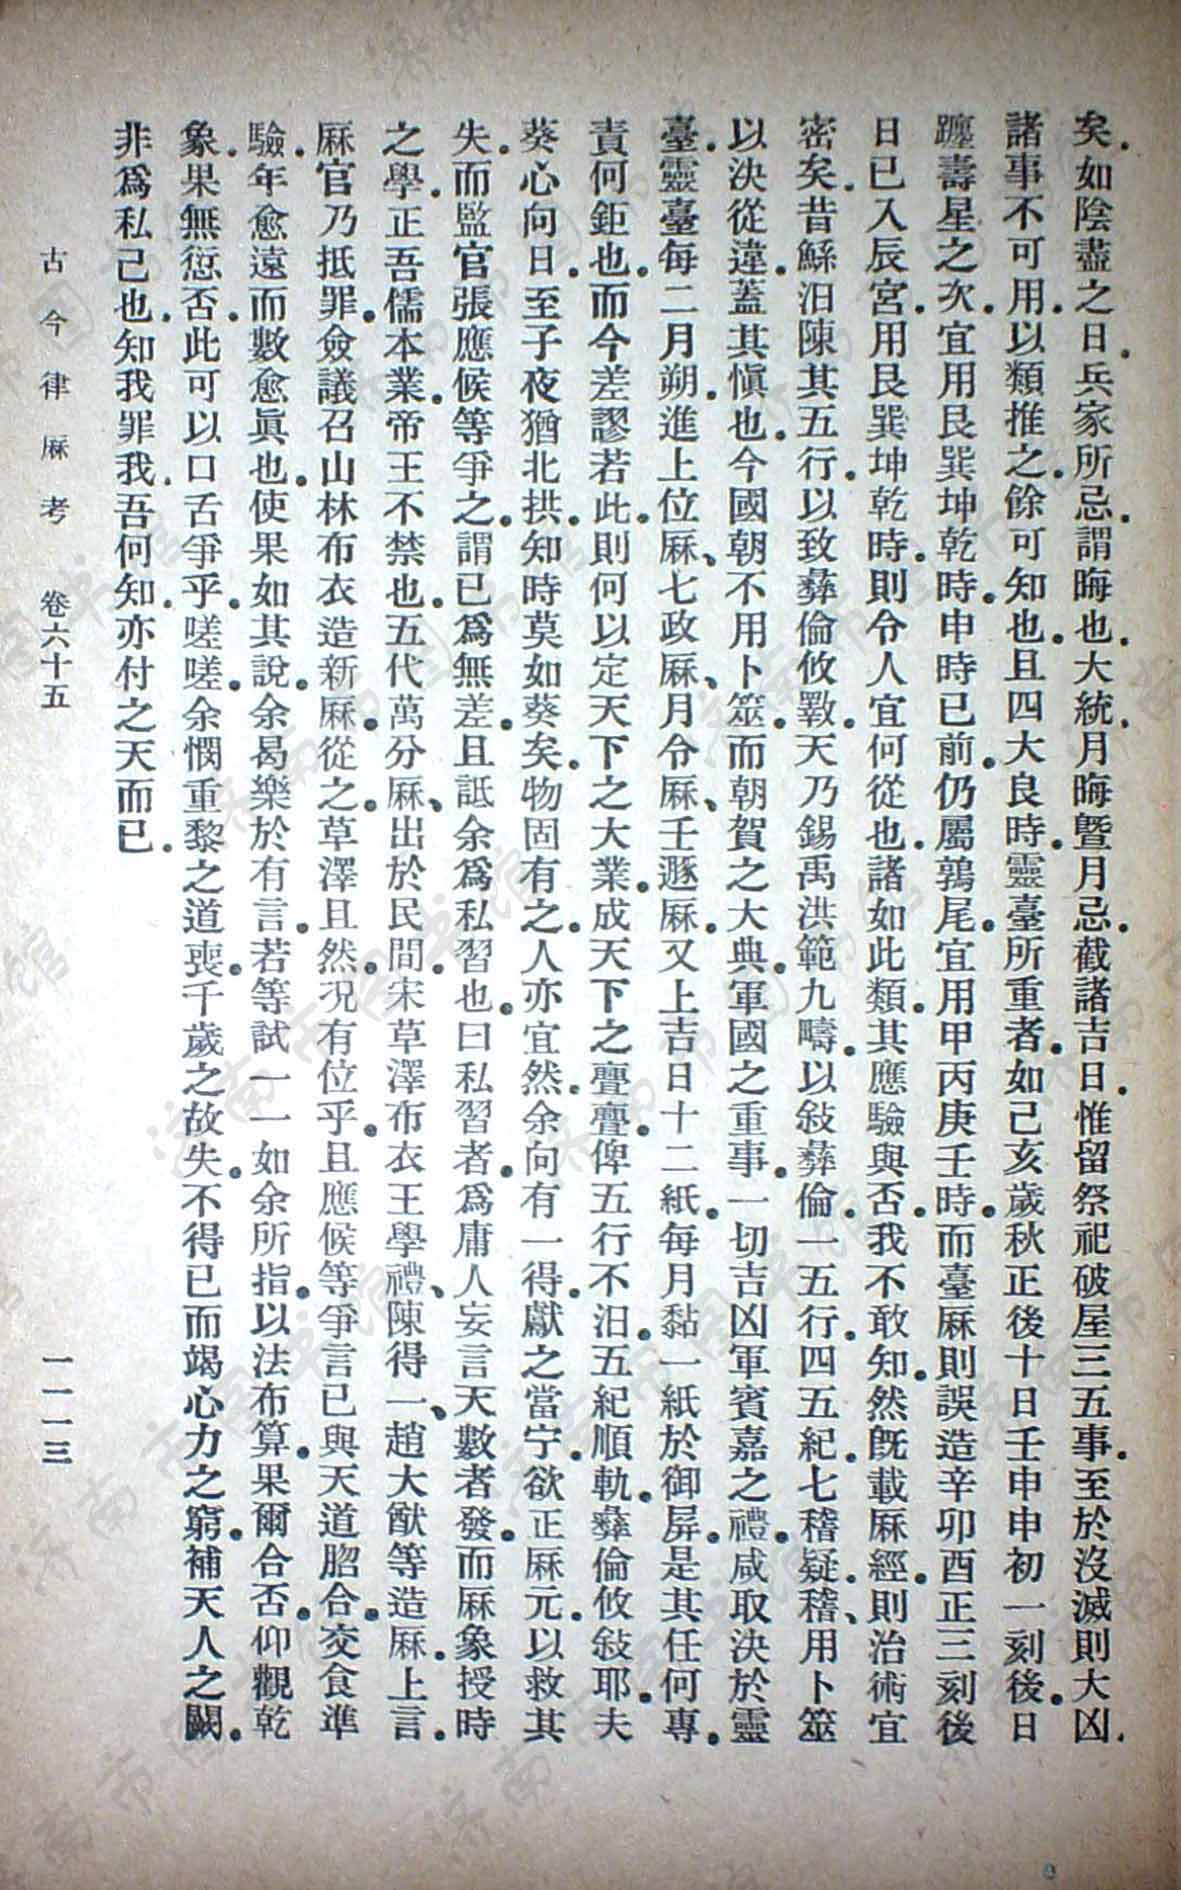 矣.如陰盡之日.兵家所忌.謂晦也.大統.月晦暨月忌.截諸吉日.惟留祭祀破屋三五事.至於沒滅則大凶.
諸事不可用.以類推之.餘可知也.且四大良時.靈臺所重者.如己亥歲秋正後十日壬申申初一刻後.日
躔壽星之次.宜用艮巽坤乾時.申時已前.仍屬鶉尾.宜用甲丙庚壬時.而臺厤則誤造辛卯酉正三刻後
日已入辰宮.用艮巽坤乾時.則令人宜何從也.諸如此類.其應驗與否.我不敢知.然旣載厤經.則治術宜
密矣.昔鯀汨陳其五行.以致彝倫攸斁.天乃錫禹洪範九疇.以敍彝倫.一五行.四五紀.七稽疑.稽、用卜筮
以決從違.蓋其愼也.今國朝不用卜筮.而朝賀之大典.軍國之重事.一切吉凶軍賓嘉之禮.咸取決於靈
臺.靈臺每二月朔.進上位厤、七政厤、月令厤、壬遯厤.又上吉日十二紙.每月黏一紙於御屏.是其任何專.
責何鉅也.而今差謬若此.則何以定天下之大業.成天下之亹亹.俾五行不汨.五紀順軌.彝倫攸敍耶.夫
葵心向日.至子夜猶北拱.知時莫如葵矣.物固有之.人亦宜然.余向有一得.獻之當宁.欲正厤元.以救其
失.而監官張應候等爭之.謂已爲無差.且詆余爲私習也.曰私習者.爲庸人妄言天數者發.而厤象授時
之學.正吾儒本業.帝王不禁也.五代萬分厤、出於民間.宋草澤布衣王學禮、陳得一、趙大猷等造厤.上言.
厤官乃抵罪.僉議召山林布衣造新厤.從之.草澤且然.況有位乎.且應候等爭言已與天道脗合.交食準
驗.年愈遠而數愈眞也.使果如其說.余曷樂於有言.若等試一一如余所指.以法布算.果爾合否.仰觀乾
象.果無愆否.此可以口舌爭乎.嗟嗟.余憫重黎之道喪.千歲之故失.不得已而竭心力之窮.補天人之闕.
非爲私己也.知我罪我.吾何知.亦付之天而已.
古今律厤考 卷六十五 一一一三